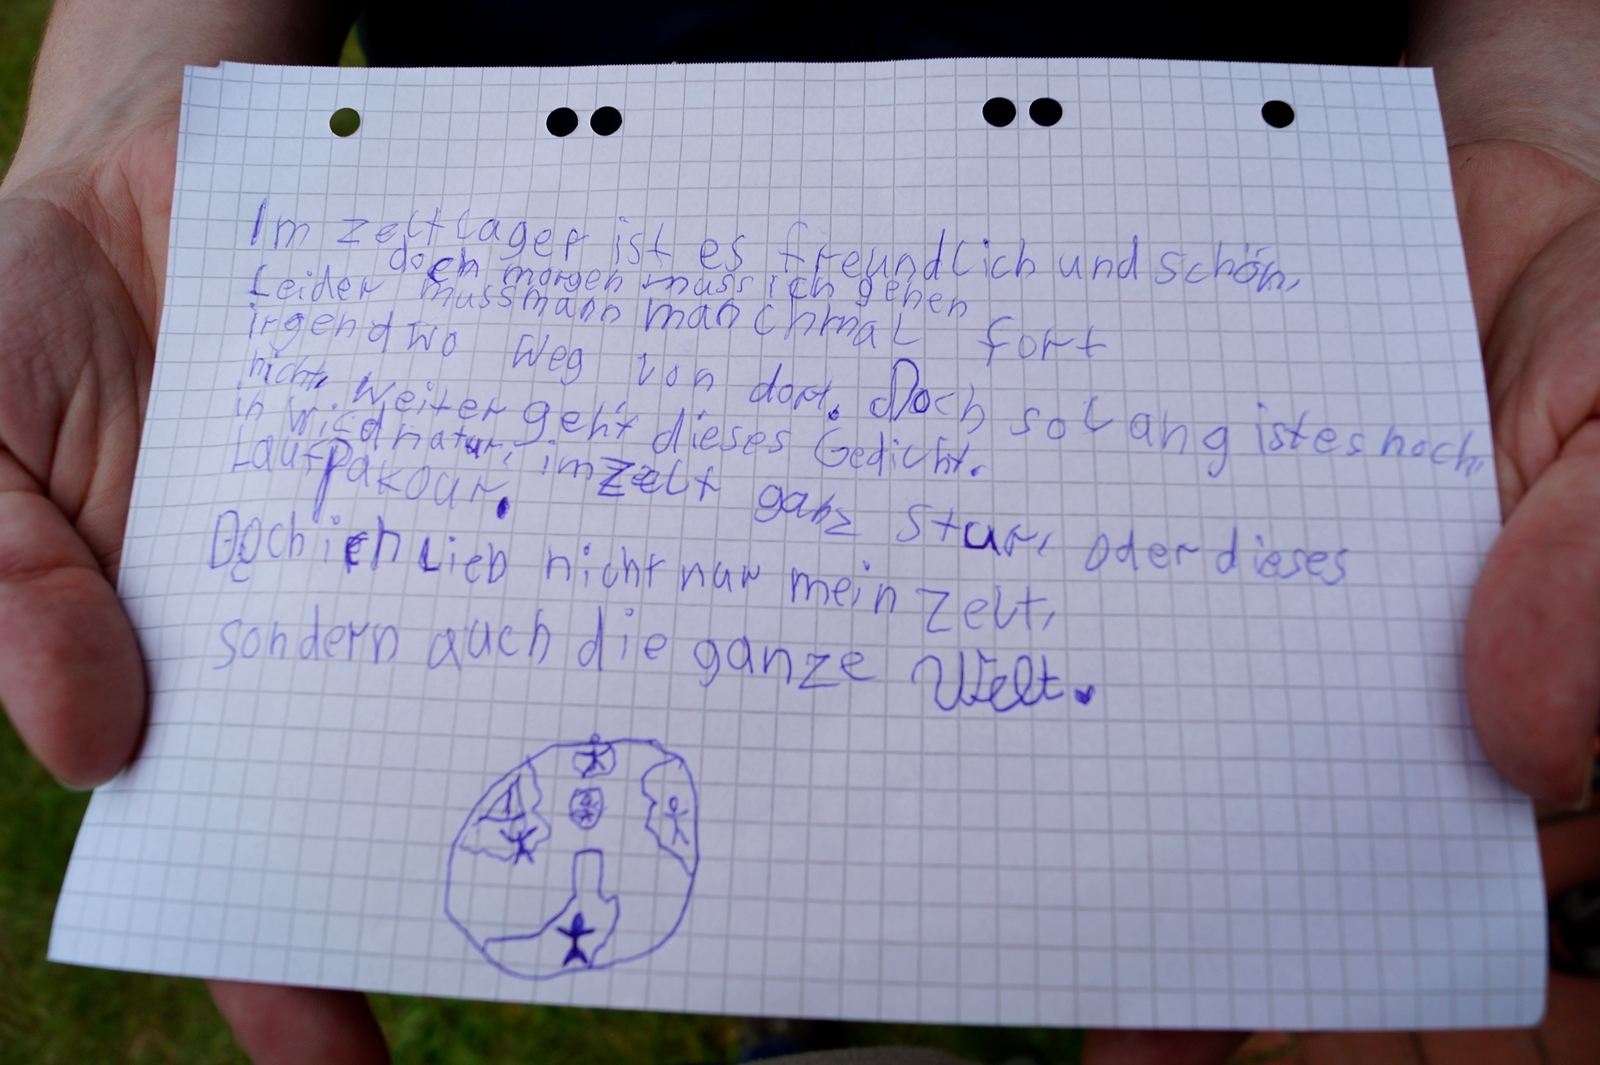 Im zeltlager ist es freundlich und schön,
doch morgen muss ich gehen
Leider mussmann manchmal fort
irgendwo weg von dort. Doch solang istes noch
nicht, weiter geht dieses Gedicht.
in Wildnatur, im Zelt ganz stur, oder dieses
Laufpakour.
Doch ich lieb nicht nur mein Zelt,
sondern auch die ganze Welt.